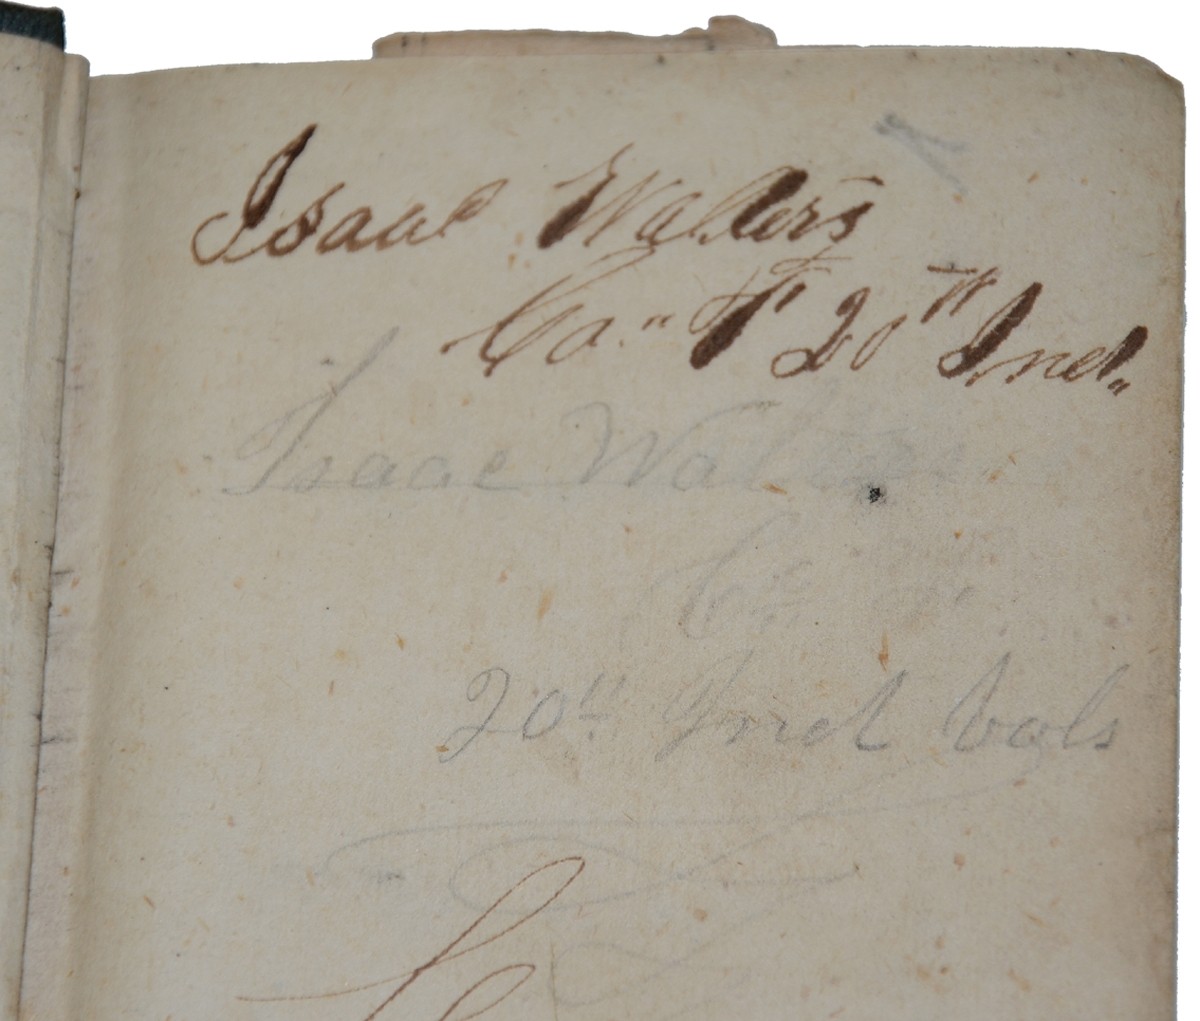 Isaac Walters
Co. "F" 20th Ind.
Isaac Walters
Co
20th Ind Vols